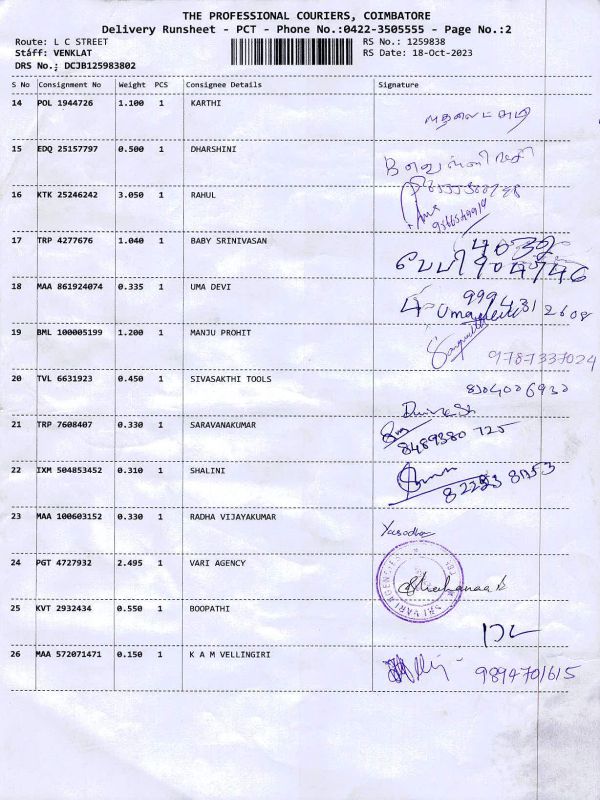 THE PROFESSIONAL COURIERS, COIMBATORE
Delivery Runsheet - PCT - Phone No.:0422-3505555 - Page No.:2
Route: L C STREET RS No.: 1259838
Staff: VENKLAT RS Date: 18-Oct-2023
DRS No.: DCJB125983802
S No Consignment No Weight PCS Consignee Details Signature
14 POL 1944726 1.100 1 KARTHI
15 EDQ 25157797 0.500 1 DHARSHINI
16 KTK 25246242 3.050 1 RAHUL
17 TRP 4277676 1.040 1 BABY SRINIVASAN
18 MAA 861924074 0.335 1 UMA DEVI
19 BML 100005199 1.200 1 MANJU PROHIT 9787337024
20 TVL 6631923 0.450 1 SIVASAKTHI TOOLS
21 TRP 7608407 0.330 1 SARAVANAKUMAR 8489380 725
22 IXM 504853452 0.310 1 SHALINI
23 MAA 100603152 0.330 1 RADHA VIJAYAKUMAR Yasodha
24 PGT 4727932 2.495 1 VARI AGENCY
25 KVT 2932434 0.550 1 BOOPATHI
26 MAA 572071471 0.150 1 K A M VELLINGIRI 9894701615